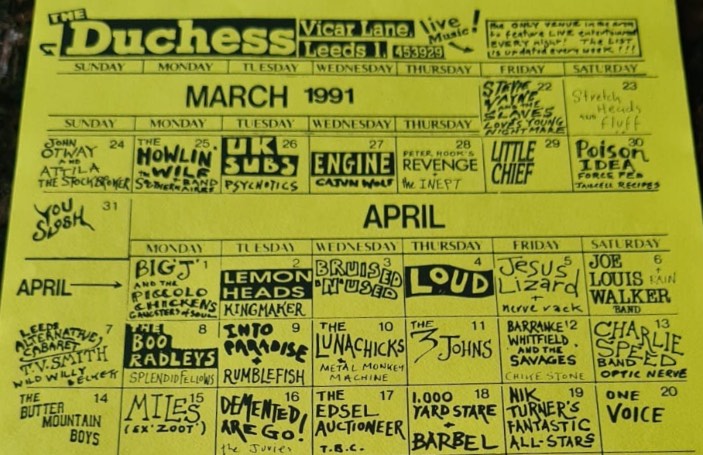 THE
Duchess
Vicar Lane,
Leeds 1. 453929
live
Music!
The ONLY VENUE in the area
to feature LIVE entertainment
EVERY night! The LIST
is updated every week!!!
SUNDAY MONDAY TUESDAY WEDNESDAY THURSDAY FRIDAY SATURDAY
MARCH 1991
22
STEVIE
WAYNE
SLAVES
YOUNG
NIGHTMARE
23
Stretch
Heads
Fluff
SUNDAY MONDAY TUESDAY WEDNESDAY THURSDAY
24
JOHN
OTWAY
AND
ATTILA
THE STOCKBROKER
25
THE
HOWLIN
WILF
BAND
26
UK
SUBS
PSYCHOTICS
27
ENGINE
CAJUN WOLF
28
PETER HOOK'S
REVENGE
+
the INEPT
29
LITTLE
CHIEF
30
POISON
IDEA
FORCE FED
RECIPES
31
YOU
SLOSH
APRIL
MONDAY TUESDAY WEDNESDAY THURSDAY FRIDAY SATURDAY
APRIL
1
BIG 'J'
AND THE
PICCOLO
CHICKENS
GANGSTERS of SOUL
2
LEMON
HEADS
KINGMAKER
3
BRUISED
'N' USED
4
LOUD
5
Jesus
Lizard
+
nerve rack
6
JOE
LOUIS
WALKER
BAND
+ RAIN
7
LEEDS
ALTERNATIVE
CABARET
T.V. SMITH
WILD WILLY BECKETT
8
THE
BOO
RADLEYS
SPLENDID FELLOWS
9
INTO
PARADISE
+
RUMBLEFISH
10
THE
LUNACHICKS
+
METAL MONKEY
MACHINE
11
THE
3 JOHNS
12
BARRANCE
WHITFIELD
AND THE
SAVAGES
STONE
13
CHARLIE
SPEED
BAND
OPTIC NERVE
14
THE
BUTTER
MOUNTAIN
BOYS
15
MILES
(EX 'ZOOT')
16
DEMENTED
ARE GO!
the Junies
17
THE
EDSEL
AUCTIONEER
T.B.C.
18
1,000
YARD STARE
+
BARBEL
19
NIK
TURNER'S
FANTASTIC
ALL-STARS
20
ONE
VOICE